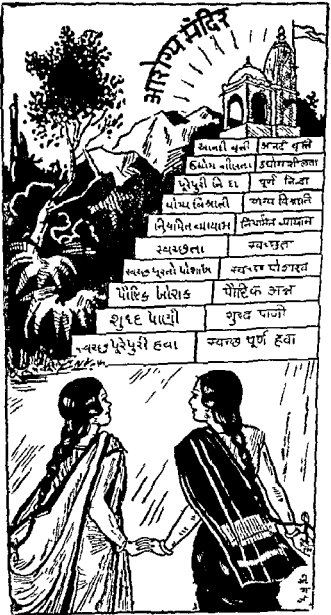 आरोग्य मंदिर
આનંદી વૃત્તી आनंदी वृत्ति
ઉદ્યોગ શીલતા उद्योगशीलता
પૂરેપૂરી નિદ્રા पूर्ण निद्रा
યોગ્ય વિશ્રાંતી योग्य विश्रांति
નિયમિત વ્યાયામ नियमित व्यायाम
સ્વચ્છતા स्वच्छता
સ્વચ્છ પૂરતો પોશાખ स्वच्छ पोशाख
પૌષ્ટિક ખોરાક पौष्टिक अन्न
શુધ્ધ પાણી शुध्द पाणी
સ્વચ્છ પૂરેપુરી હવા स्वच्छ पूर्ण हवा